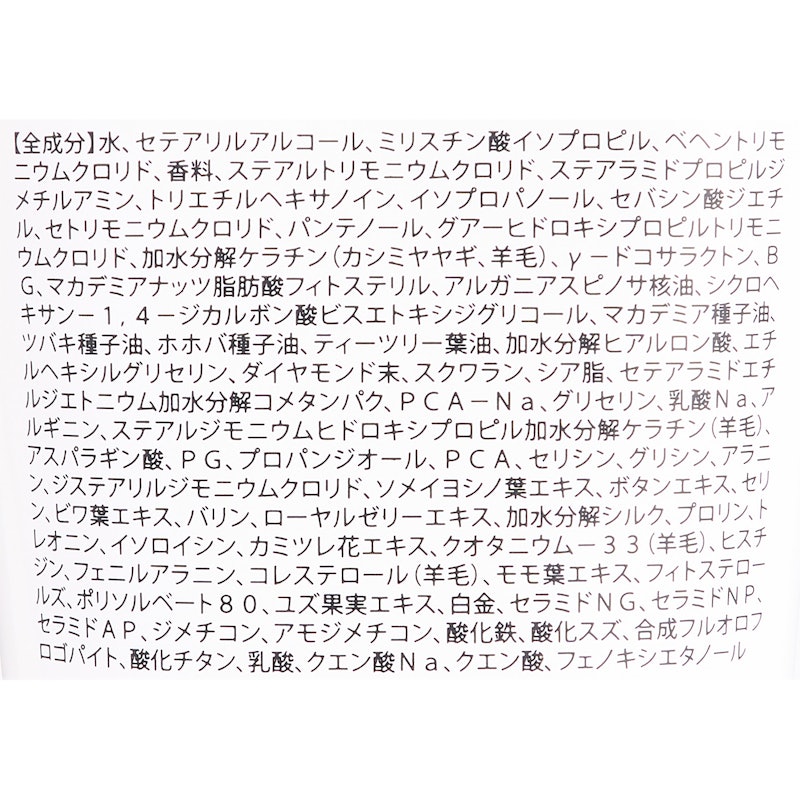 【全成分】水、セテアリルアルコール、ミリスチン酸イソプロピル、ベヘントリモ
ニウムクロリド、香料、ステアルトリモニウムクロリド、ステアラミドプロピルジ
メチルアミン、トリエチルヘキサノイン、イソプロパノール、セバシン酸ジエチ
ル、セトリモニウムクロリド、パンテノール、グアーヒドロキシプロピルトリモニ
ウムクロリド、加水分解ケラチン（カシミヤヤギ、羊毛）、γ－ドコサラクトン、B
G、マカデミアナッツ脂肪酸フィトステリル、アルガニアスピノサ核油、シクロヘ
キサン－１，４－ジカルボン酸ビスエトキシジグリコール、マカデミア種子油、
ツバキ種子油、ホホバ種子油、ティーツリー葉油、加水分解ヒアルロン酸、エチ
ルヘキシルグリセリン、ダイヤモンド末、スクワラン、シア脂、セテアラミドエチ
ルジエトニウム加水分解コメタンパク、ＰＣＡ－Ｎａ、グリセリン、乳酸Ｎａ、ア
ルギニン、ステアルジモニウムヒドロキシプロピル加水分解ケラチン（羊毛）、
アスパラギン酸、ＰＧ、プロパンジオール、ＰＣＡ、セリシン、グリシン、アラニ
ン、ジステアリルジモニウムクロリド、ソメイヨシノ葉エキス、ボタンエキス、セリ
ン、ビワ葉エキス、バリン、ローヤルゼリーエキス、加水分解シルク、プロリン、ト
レオニン、イソロイシン、カミツレ花エキス、クオタニウム－３３（羊毛）、ヒスチ
ジン、フェニルアラニン、コレステロール（羊毛）、モモ葉エキス、フィトステロー
ルズ、ポリソルベート８０、ユズ果実エキス、白金、セラミドＮＧ、セラミドＮＰ、
セラミドＡＰ、ジメチコン、アモジメチコン、酸化鉄、酸化スズ、合成フルオロフ
ロゴパイト、酸化チタン、乳酸、クエン酸Ｎａ、クエン酸、フェノキシエタノール